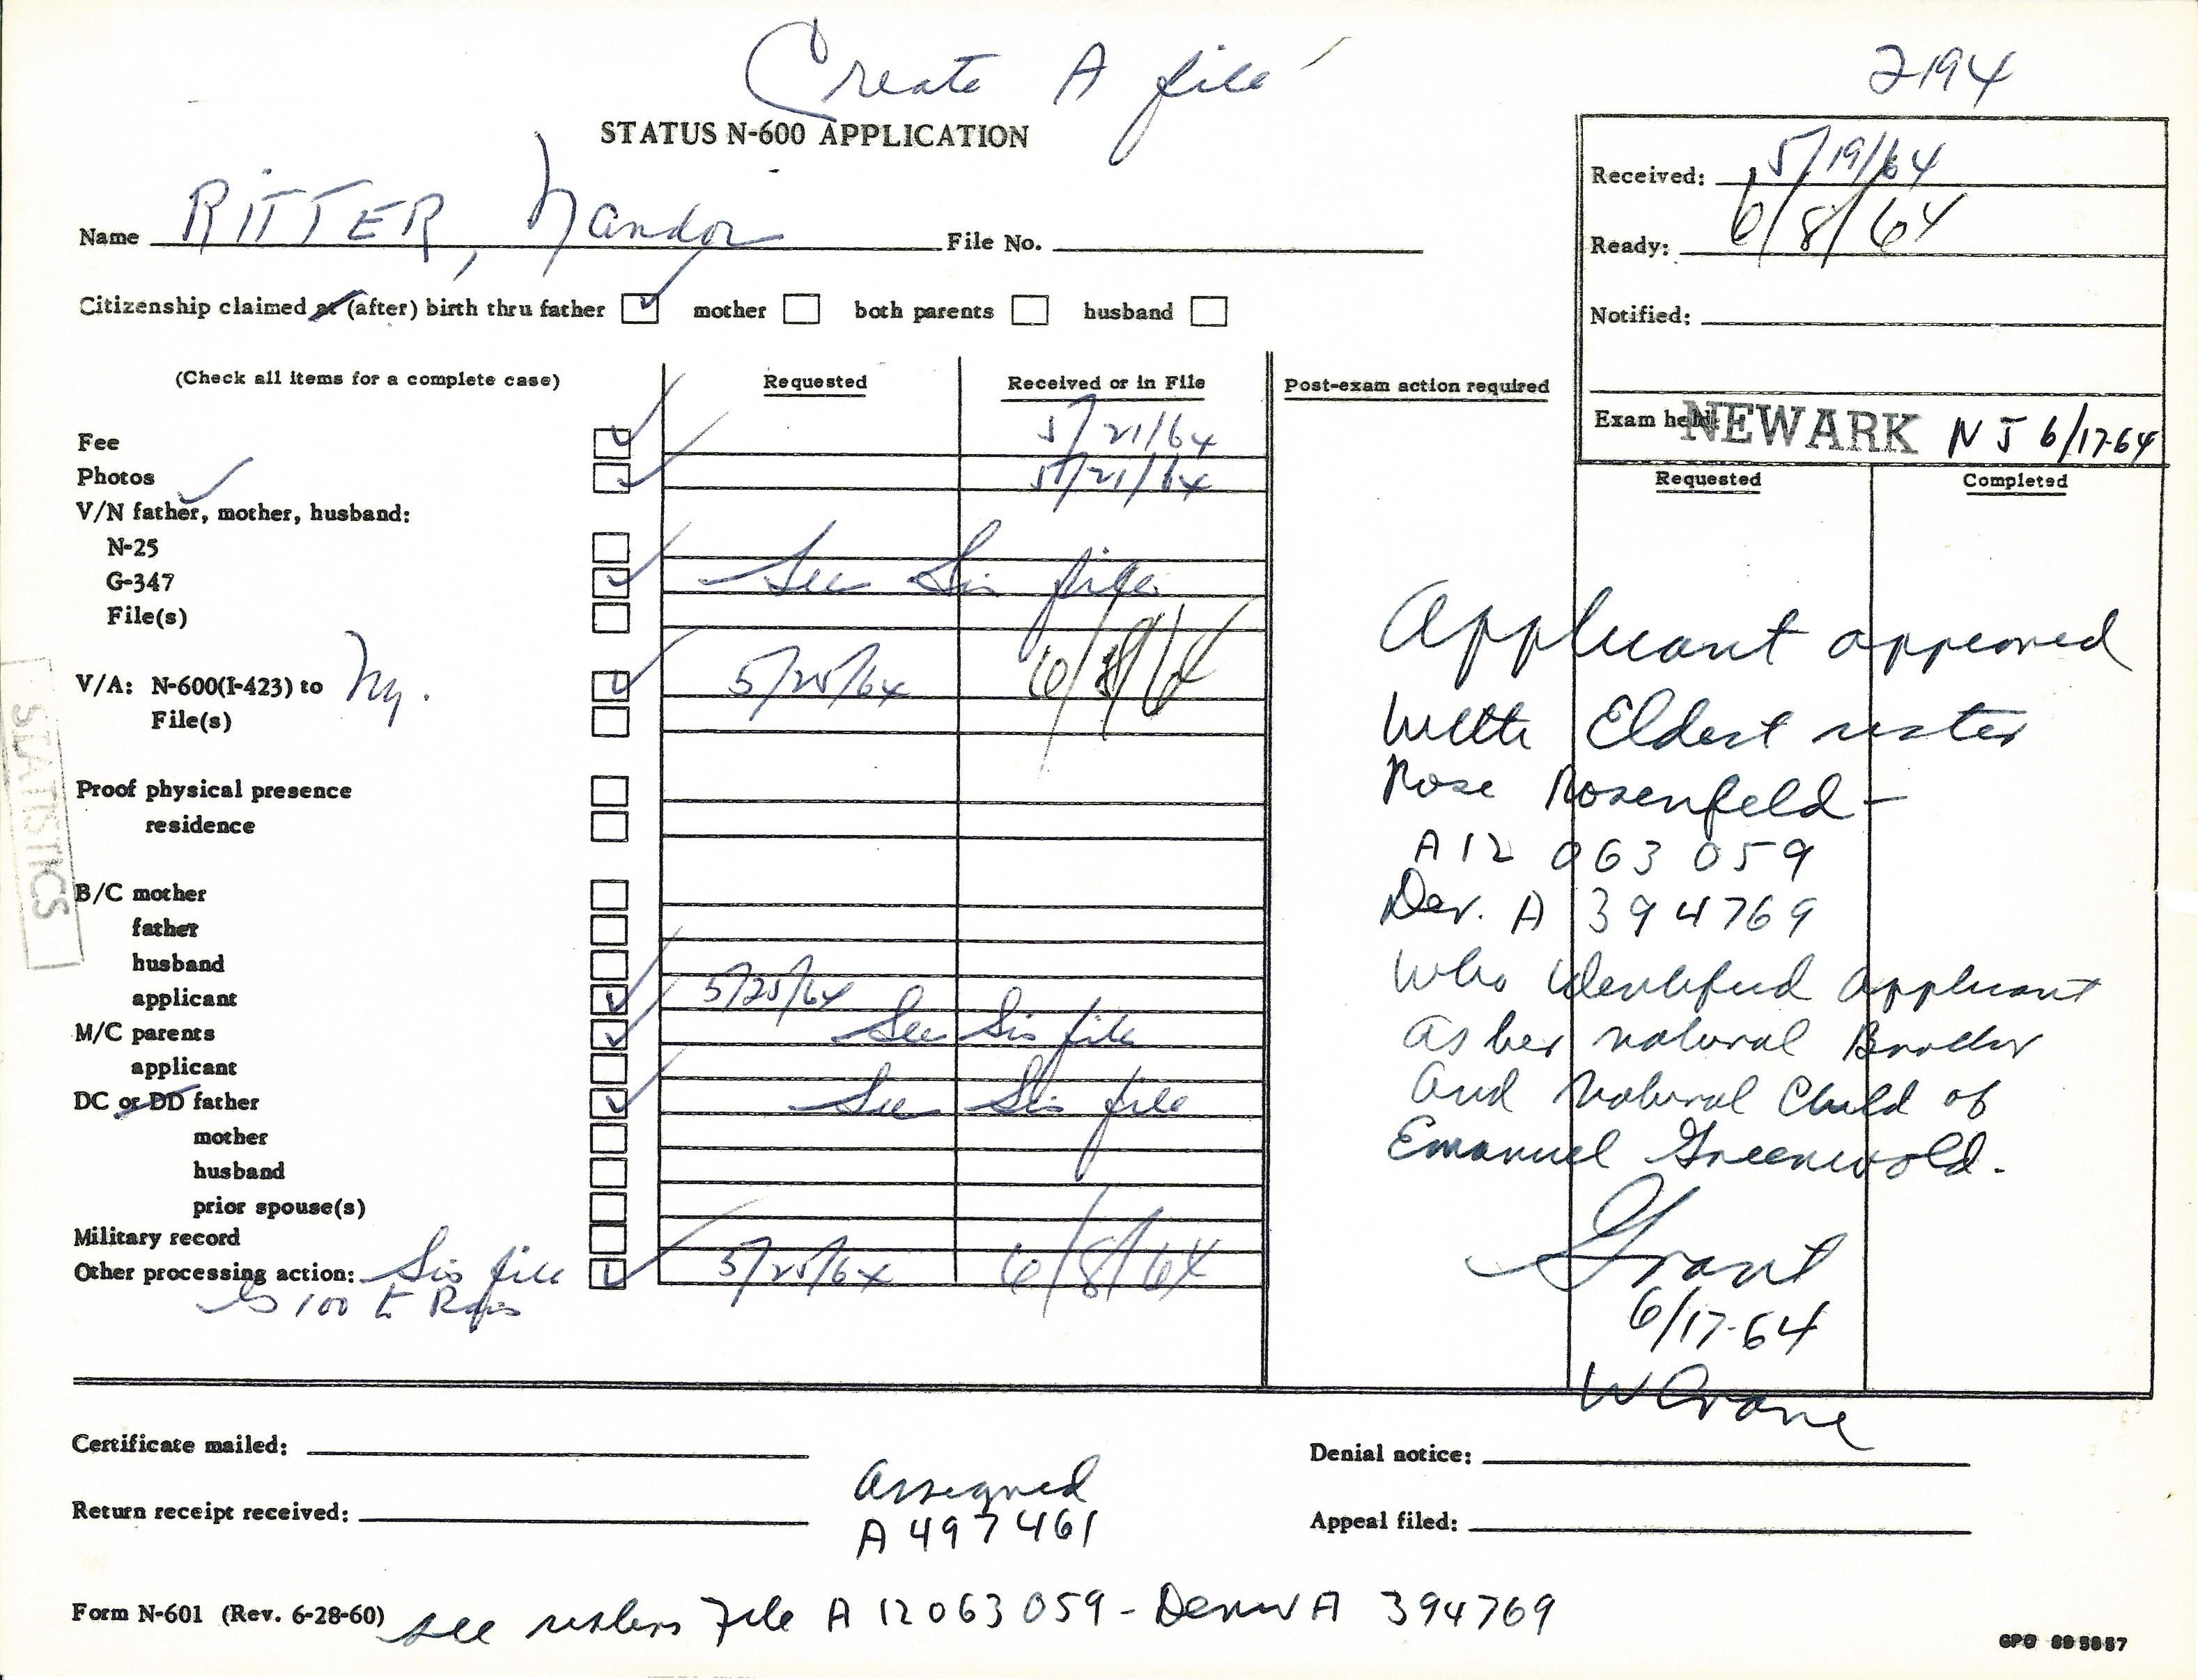 Create A file
2194
STATUS N-600 APPLICATION
Received: 5/19/64
Ready: 6/8/64
Notified:
Exam held: NEWARK N J 6/17-64
Name RITTER, Nandor File No.
Citizenship claimed at (after) birth thru father mother both parents husband
(Check all items for a complete case) Requested Received or in File Post-exam action required Requested Completed
Fee 5/21/64
Photos 5/21/64
V/N father, mother, husband:
N-25
G-347 See Sis file
File(s)
V/A: N-600(I-423) to Ny. 5/25/64 6/8/64
File(s)
Proof physical presence
residence
B/C mother
father
husband
applicant 5/25/64
M/C parents See Sis file
applicant
DC or DD father See Sis file
mother
husband
prior spouse(s)
Military record
Other processing action: Sis file 5/25/64 6/8/64
100
Applicant appeared
with Eldest sister
Rose Rosenfeld -
A12 063 059
Der. A 394769
who identified applicant
as her natural Brother
and natural child of
Emanuel Greenwold.
Grant
6/17-64
W Crane
STATISTICS
Certificate mailed:
Return receipt received:
Assigned
A497461
Denial notice:
Appeal filed:
Form N-601 (Rev. 6-28-60) see sisters File A 12063059 - A 394769
GPO 895857